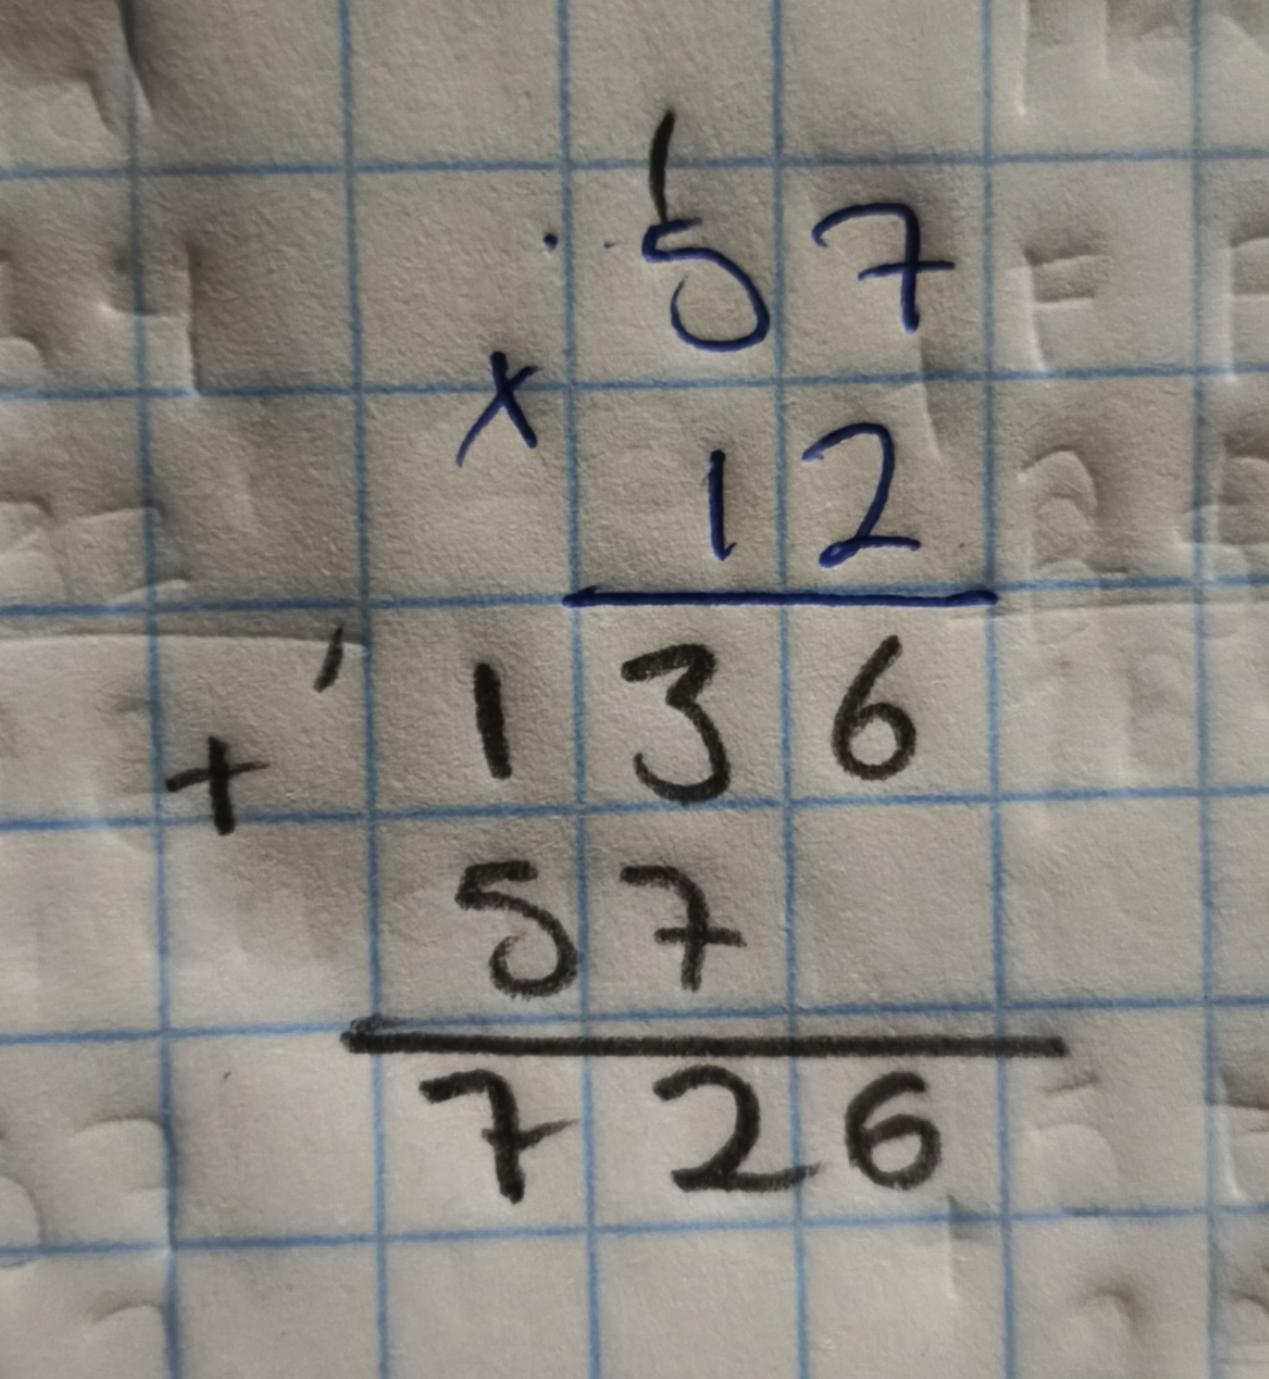 1
57
x
12
' 136
+
57
726